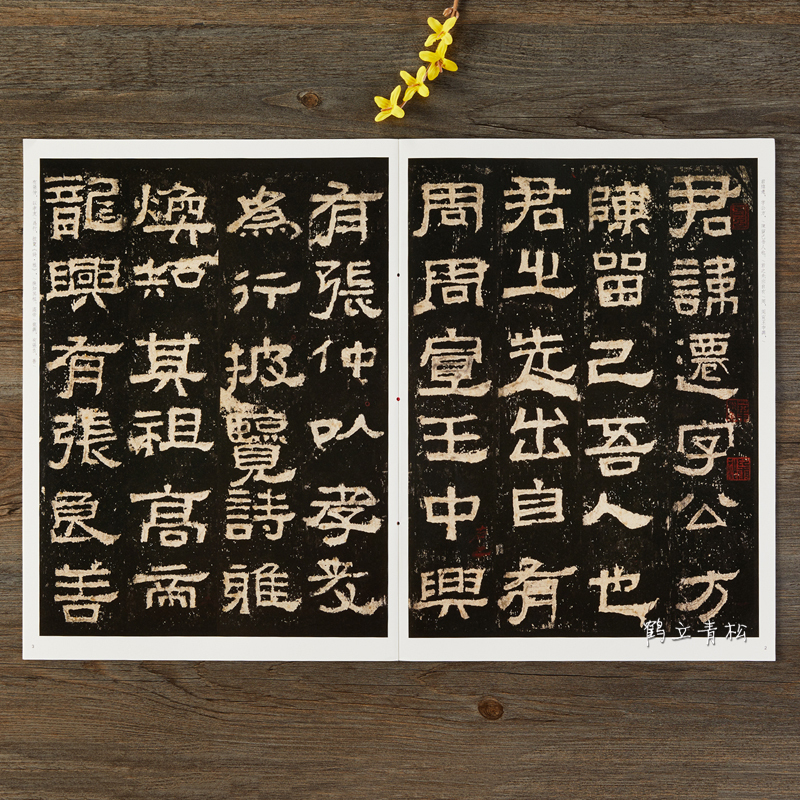 君諱遷字公方
陳留己吾人也
君之先出自有
周周宣王中興
有張仲以孝友
為行披覽詩雅
煥知其祖高帝
龍興有張良善
鹤立青松